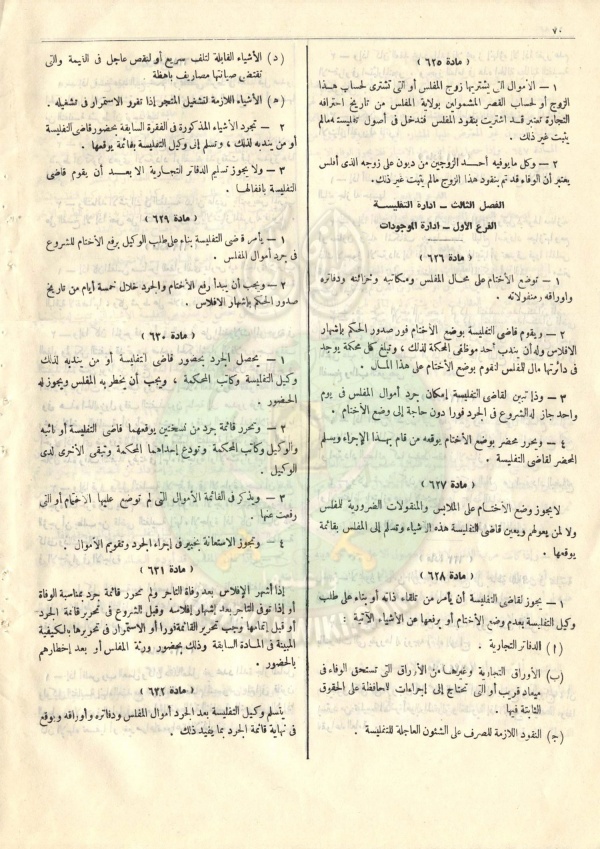 ٧٠
( مادة ٦٢٥ )
١ — الأموال التى يشتريها زوج المفلس أو التى تشترى لحساب هذا
الزوج أو لحساب القصر المشمولين بولاية المفلس من تاريخ احترافه
التجارة تعتبر قد اشتريت بنقود المفلس فتدخل فى أصول تفليسته مالم
يثبت غير ذلك .
٢ — وكل مايوفيه أحد الزوجين من ديون على زوجه الذى أفلس
يعتبر أن الوفاء قد تم بنقود هذا الزوج مالم يثبت غير ذلك .
الفصل الثالث — ادارة التفليسة
الفرع الأول — ادارة الموجودات
( مادة ٦٢٦ )
١ — توضع الأختام على محال المفلس ومكاتبه وخزائنه ودفاتره
وأوراقه ومنقولاته .
٢ — ويقوم قاضى التفليسة بوضع الأختام فور صدور الحكم بإشهار
الافلاس وله أن يندب أحد موظفى المحكمة لذلك ، وتبلغ كل محكمة يوجد
فى دائرتها مال للمفلس لتقوم بوضع الأختام على هذا المال .
٣ — وإذا تبين لقاضى التفليسة إمكان جرد أموال المفلس فى يوم
واحد جاز له الشروع فى الجرد فورا دون حاجة إلى وضع الأختام .
٤ — ويحرر محضر بوضع الأختام يوقعه من قام بهذا الإجراء ويسلم
المحضر لقاضى التفليسة .
( مادة ٦٢٧ )
لايجوز وضع الأختام على الملابس والمنقولات الضرورية للمفلس
ولا لمن يعولهم ويعين قاضى التفليسة هذه الأشياء وتسلم إلى المفلس بقائمة
يوقعها .
( مادة ٦٢٨ )
١ — يجوز لقاضى التفليسة أن يأمر من تلقاء ذاته أو بناء على طلب
وكيل التفليسة بعدم وضع الأختام أو برفعها عن الأشياء الآتية :
( أ ) الدفاتر التجارية .
(ب) الأوراق التجارية وغيرها من الأوراق التى تستحق الوفاء فى
ميعاد قريب أو التى تحتاج إلى إجراءات للمحافظة على الحقوق
الثابتة فيها .
(ج) النقود اللازمة للصرف على الشئون العاجلة للتفليسة .
(د) الأشياء القابلة لتلف سريع أو لنقص عاجل فى القيمة والتى
تقتضى صيانتها مصاريف باهظة .
(ه) الأشياء اللازمة لتشغيل المتجر إذا تقرر الاستمرار فى تشغيله .
٢ — تجرد الأشياء المذكورة فى الفقرة السابقة بحضور قاضى التفليسة
أو من يندبه لذلك ، وتسلم إلى وكيل التفليسة بقائمة يوقعها .
٣ — ولا يجوز تسليم الدفاتر التجارية الا بعد أن يقوم قاضى
التفليسة باقفالها .
( مادة ٦٢٩ )
١ — يأمر قاضى التفليسة بناء على طلب الوكيل برفع الأختام للشروع
فى جرد أموال المفلس .
٢ — ويجب أن يبدأ رفع الأختام والجرد خلال خمسة أيام من تاريخ
صدور الحكم بإشهار الافلاس .
( مادة ٦٣٠ )
١ — يحصل الجرد بحضور قاضى التفليسة أو من يندبه لذلك
وكيل التفليسة وكاتب المحكمة ، ويجب أن يخطر به المفلس ويجوز له
الحضور .
٢ — وتحرر قائمة جرد من نسختين يوقعهما قاضى التفليسة أو نائبه
والوكيل وكاتب المحكمة وتودع إحداهما المحكمة وتبقى الأخرى لدى
الوكيل .
٣ — ويذكر فى القائمة الأموال التى لم توضع عليها الأختام أو التى
رفعت عنها .
٤ — وتجوز الاستعانة بخبير فى إجراء الجرد وتقويم الأموال .
( مادة ٦٣١ )
إذا أشهر الإفلاس بعد وفاة التاجر ولم تحرر قائمة جرد بمناسبة الوفاة
أو إذا توفى التاجر بعد إشهار إفلاسه وقبل الشروع فى تحرير قائمة الجرد
أو قبل إتمامها وجب تحرير القائمة فورا أو الاستمرار فى تحريرها بالكيفية
المبينة فى المادة السابقة وذلك بحضور ورثة المفلس أو بعد إخطارهم
بالحضور .
( مادة ٦٣٢ )
يتسلم وكيل التفليسة بعد الجرد أموال المفلس ودفاتره وأوراقه ويوقع
فى نهاية قائمة الجرد بما يفيد ذلك .